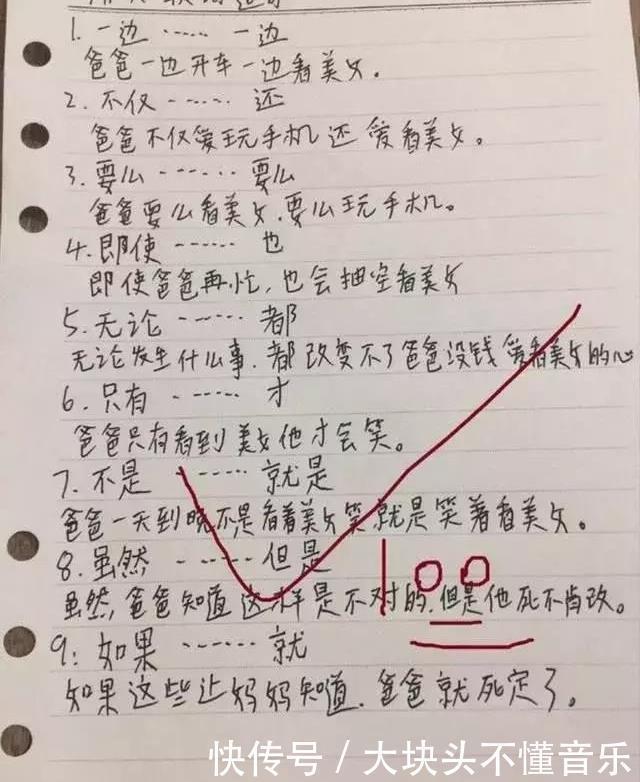 1. 一边 …… 一边
爸爸一边开车一边看美女。
2. 不仅 …… 还
爸爸不仅爱玩手机还爱看美女。
3. 要么 …… 要么
爸爸要么看美女.要么玩手机。
4. 即使 …… 也
即使爸爸再忙,也会抽空看美女
5. 无论 …… 都
无论发生什么事.都改变不了爸爸没钱爱看美女的心
6. 只有 …… 才
爸爸只有看到美女他才会笑。
7. 不是 …… 就是
爸爸一天到晚不是看着美女笑就是笑着看美女。
8. 虽然 …… 但是
虽然,爸爸知道这样是不对的.但是他死不肯改。
100
9: 如果 …… 就
如果这些让妈妈知道.爸爸就死定了。
快传号 / 大块头不懂音乐